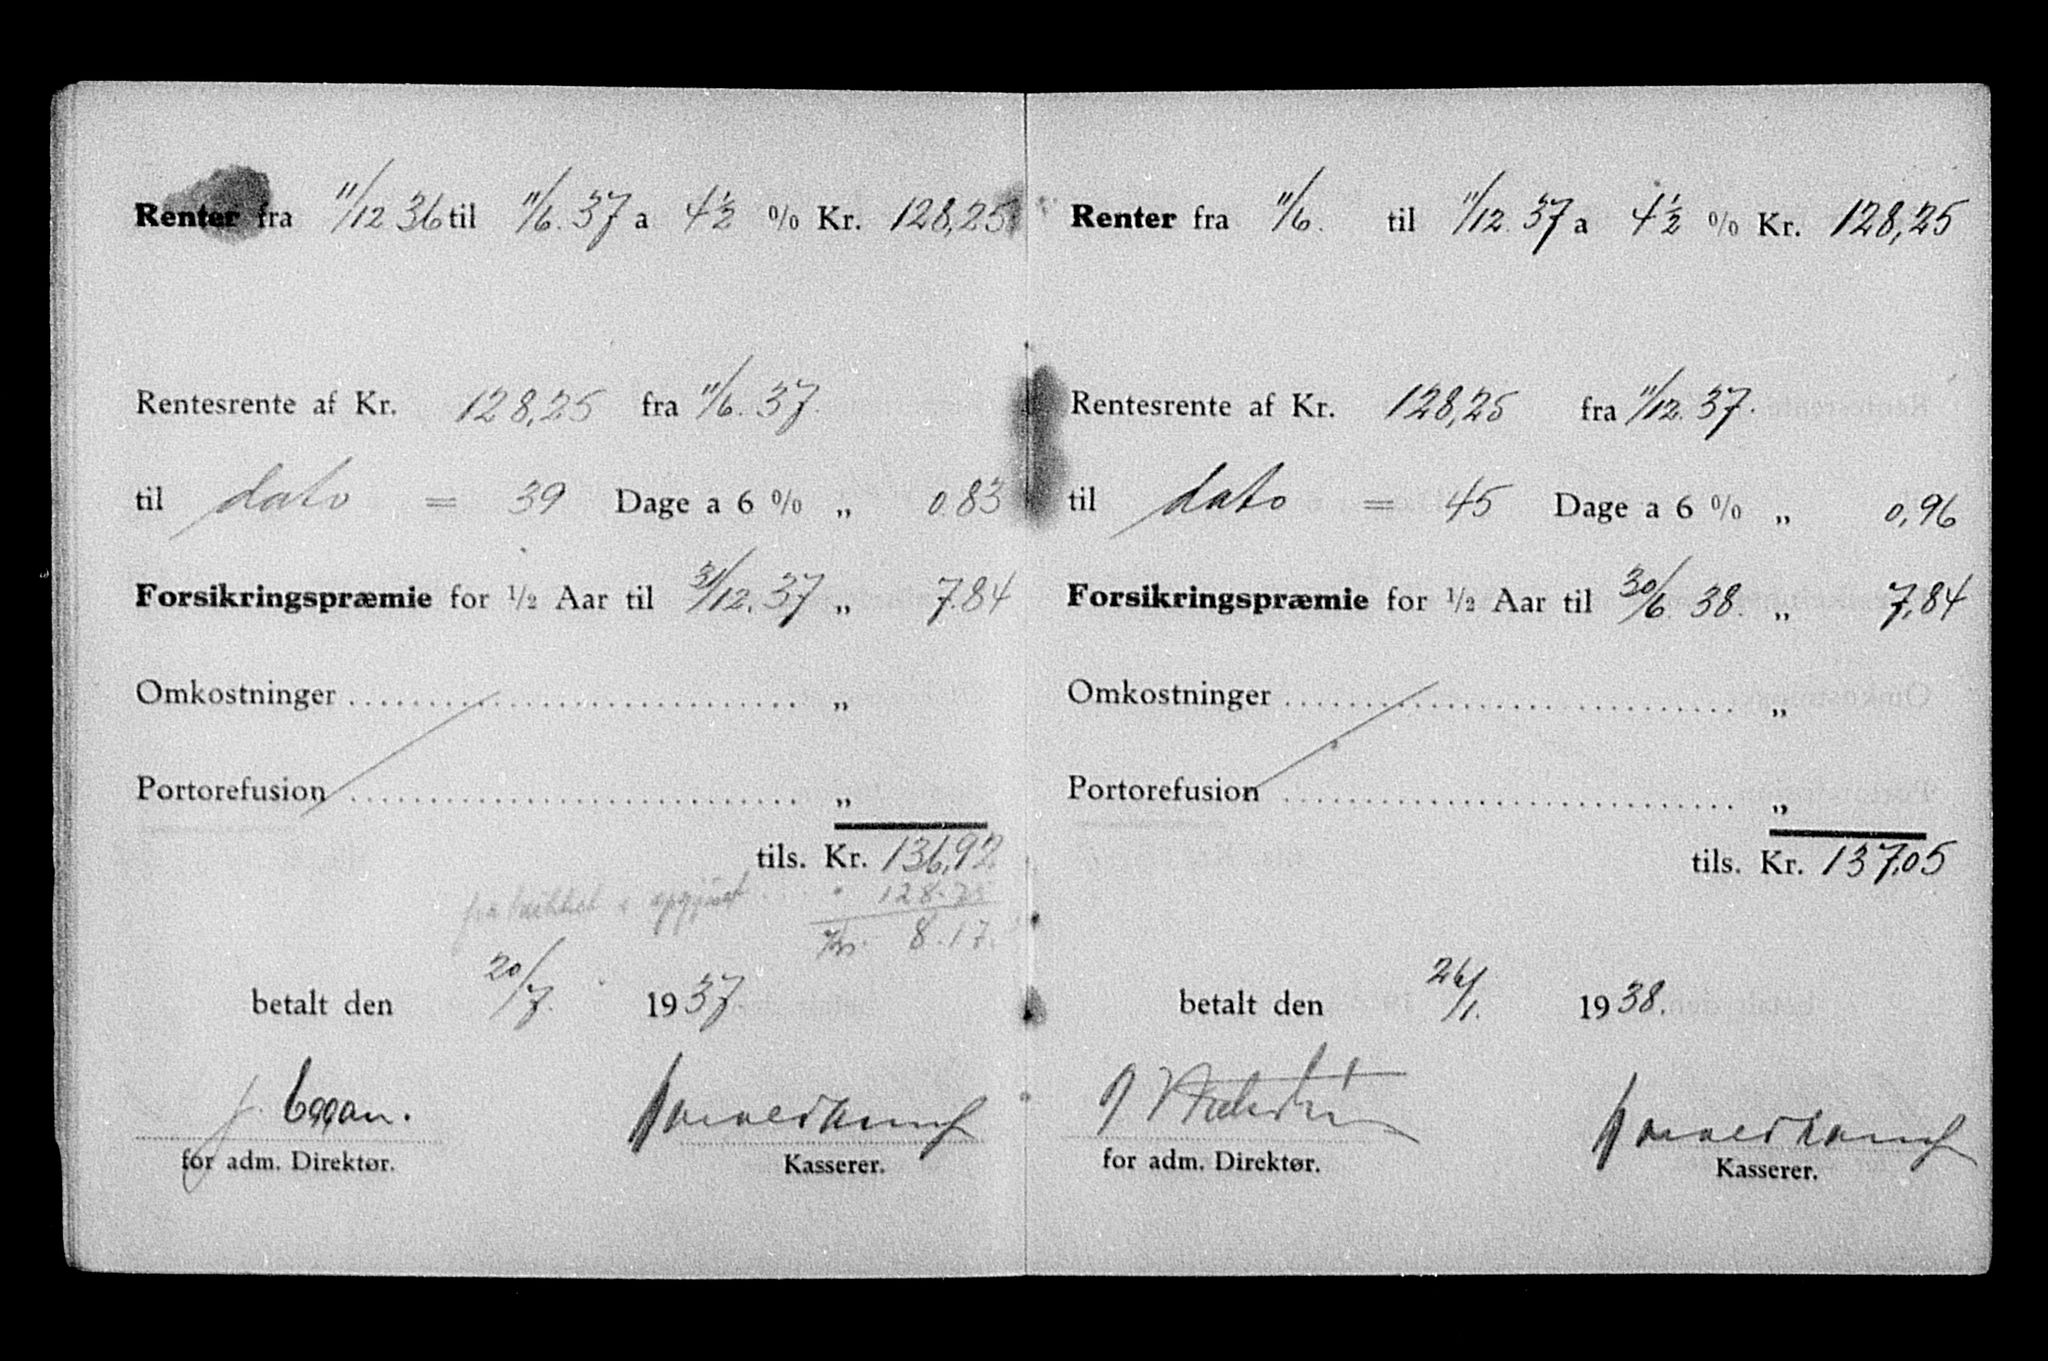 Renter fra 11/12 36 til 11/6. 37 a 4½ % Kr. 128,25
Rentesrente af Kr. 128,25 fra 11/6. 37.
til dato = 39 Dage a 6 % „ 0.83
Forsikringspræmie for 1/2 Aar til 31/12. 37 „ 7.84
Omkostninger .......................... „
Portorefusion .......................... „
tils. Kr. 136,92
128.75
Kr. 8.17.
betalt den 20/7. 1937
J. Eggan.
for adm. Direktør. Kasserer.
Renter fra 11/6. til 11/12. 37 a 4½ % Kr. 128,25
Rentesrente af Kr. 128,25 fra 11/12. 37.
til dato = 45 Dage a 6 % „ 0,96
Forsikringspræmie for 1/2 Aar til 30/6. 38. „ 7,84
Omkostninger .......................... „
Portorefusion .......................... „
tils. Kr. 137,05
betalt den 26/1. 1938.
for adm. Direktør. Kasserer.